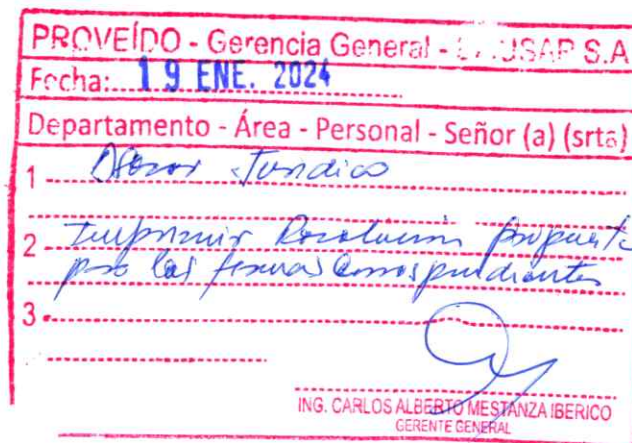 PROVEÍDO - Gerencia General - S.A
Fecha: 19 ENE. 2024
Departamento - Área - Personal - Señor (a) (srta)
1 Asesor Juridico
2 Imprimir Resolución propuesta
para las firmas correspondientes
3
ING. CARLOS ALBERTO MESTANZA IBERICO
GERENTE GENERAL